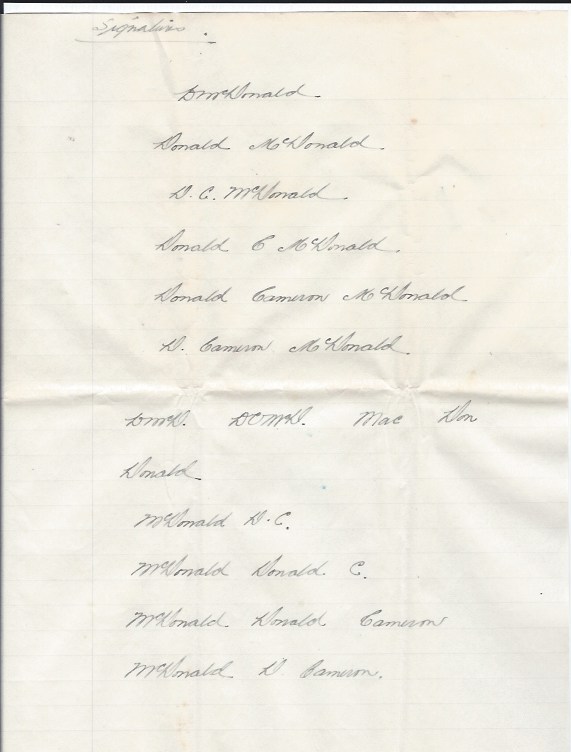 Signatures.
DMcDonald.
Donald McDonald.
D. C. McDonald.
Donald C McDonald.
Donald Cameron McDonald
D. Cameron McDonald.
DMcD. DCMcD. Mac Don
Donald
McDonald D. C.
McDonald Donald. C.
McDonald Donald Cameron
McDonald D. Cameron.